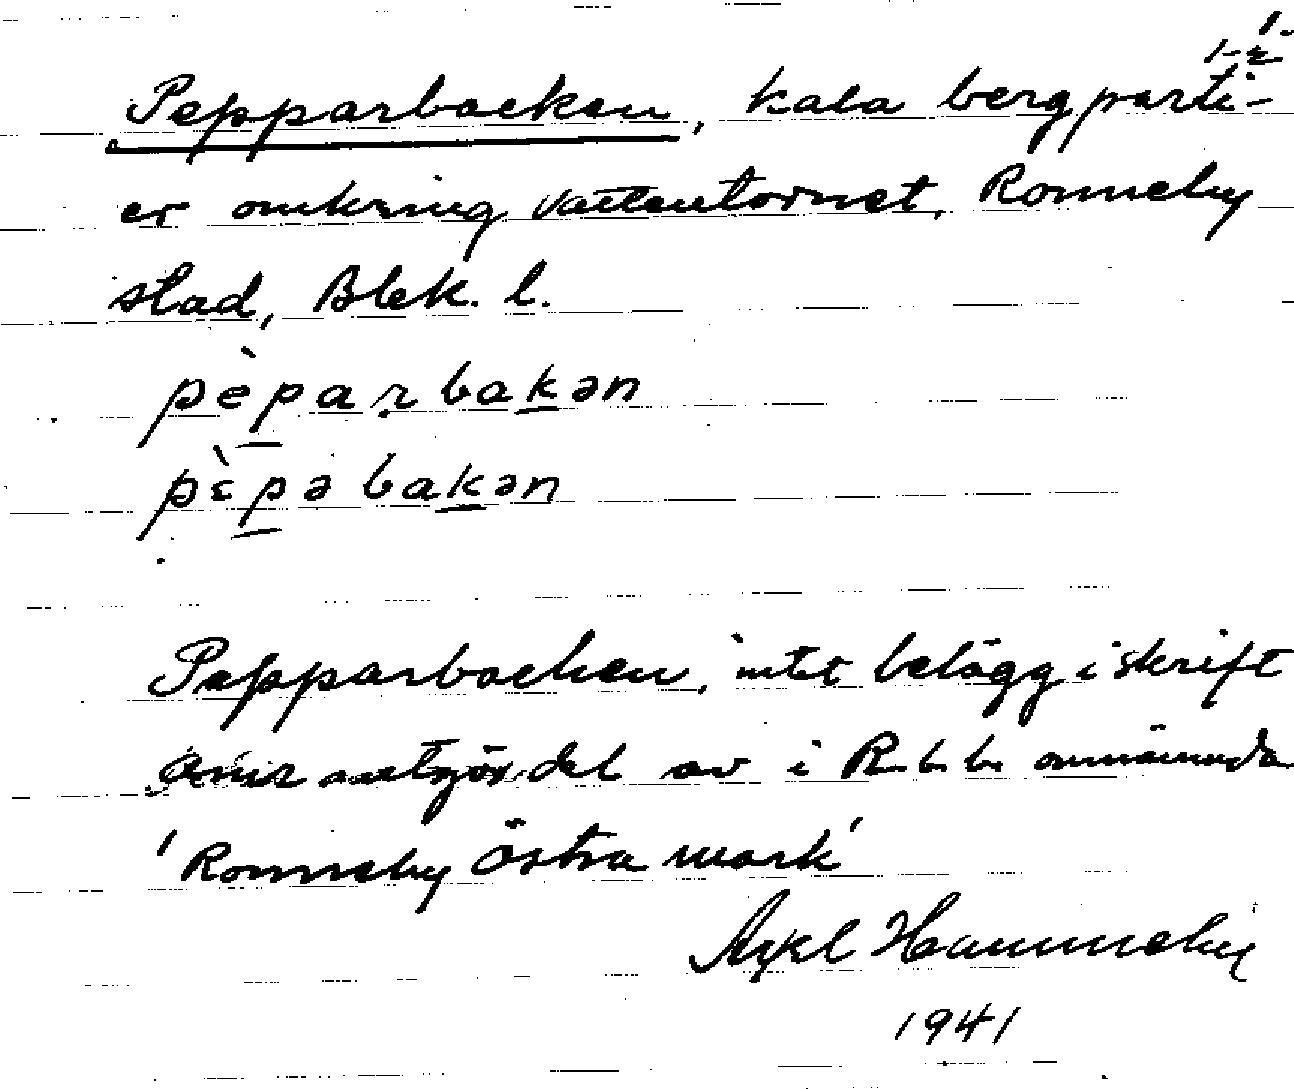 Pepparbacken, kala bergparti-
er omkring vattentornet, Ronneby
stad, Blek. l.
pèparbakən
pὲpəbakən
Pepparbacken, intet belägg i skrift
utgör del av i R.b.b. omnämnda
'Ronneby Östra mark'
Axel Hammneby
1941